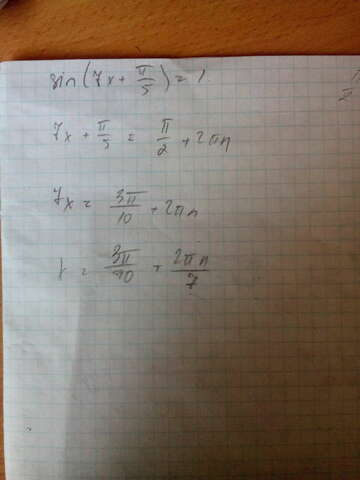 sin(7x + π/5) = 1
7x + π/5 = π/2 + 2πn
7x = 3π/10 + 2πn
x = 3π/70 + 2πn/7